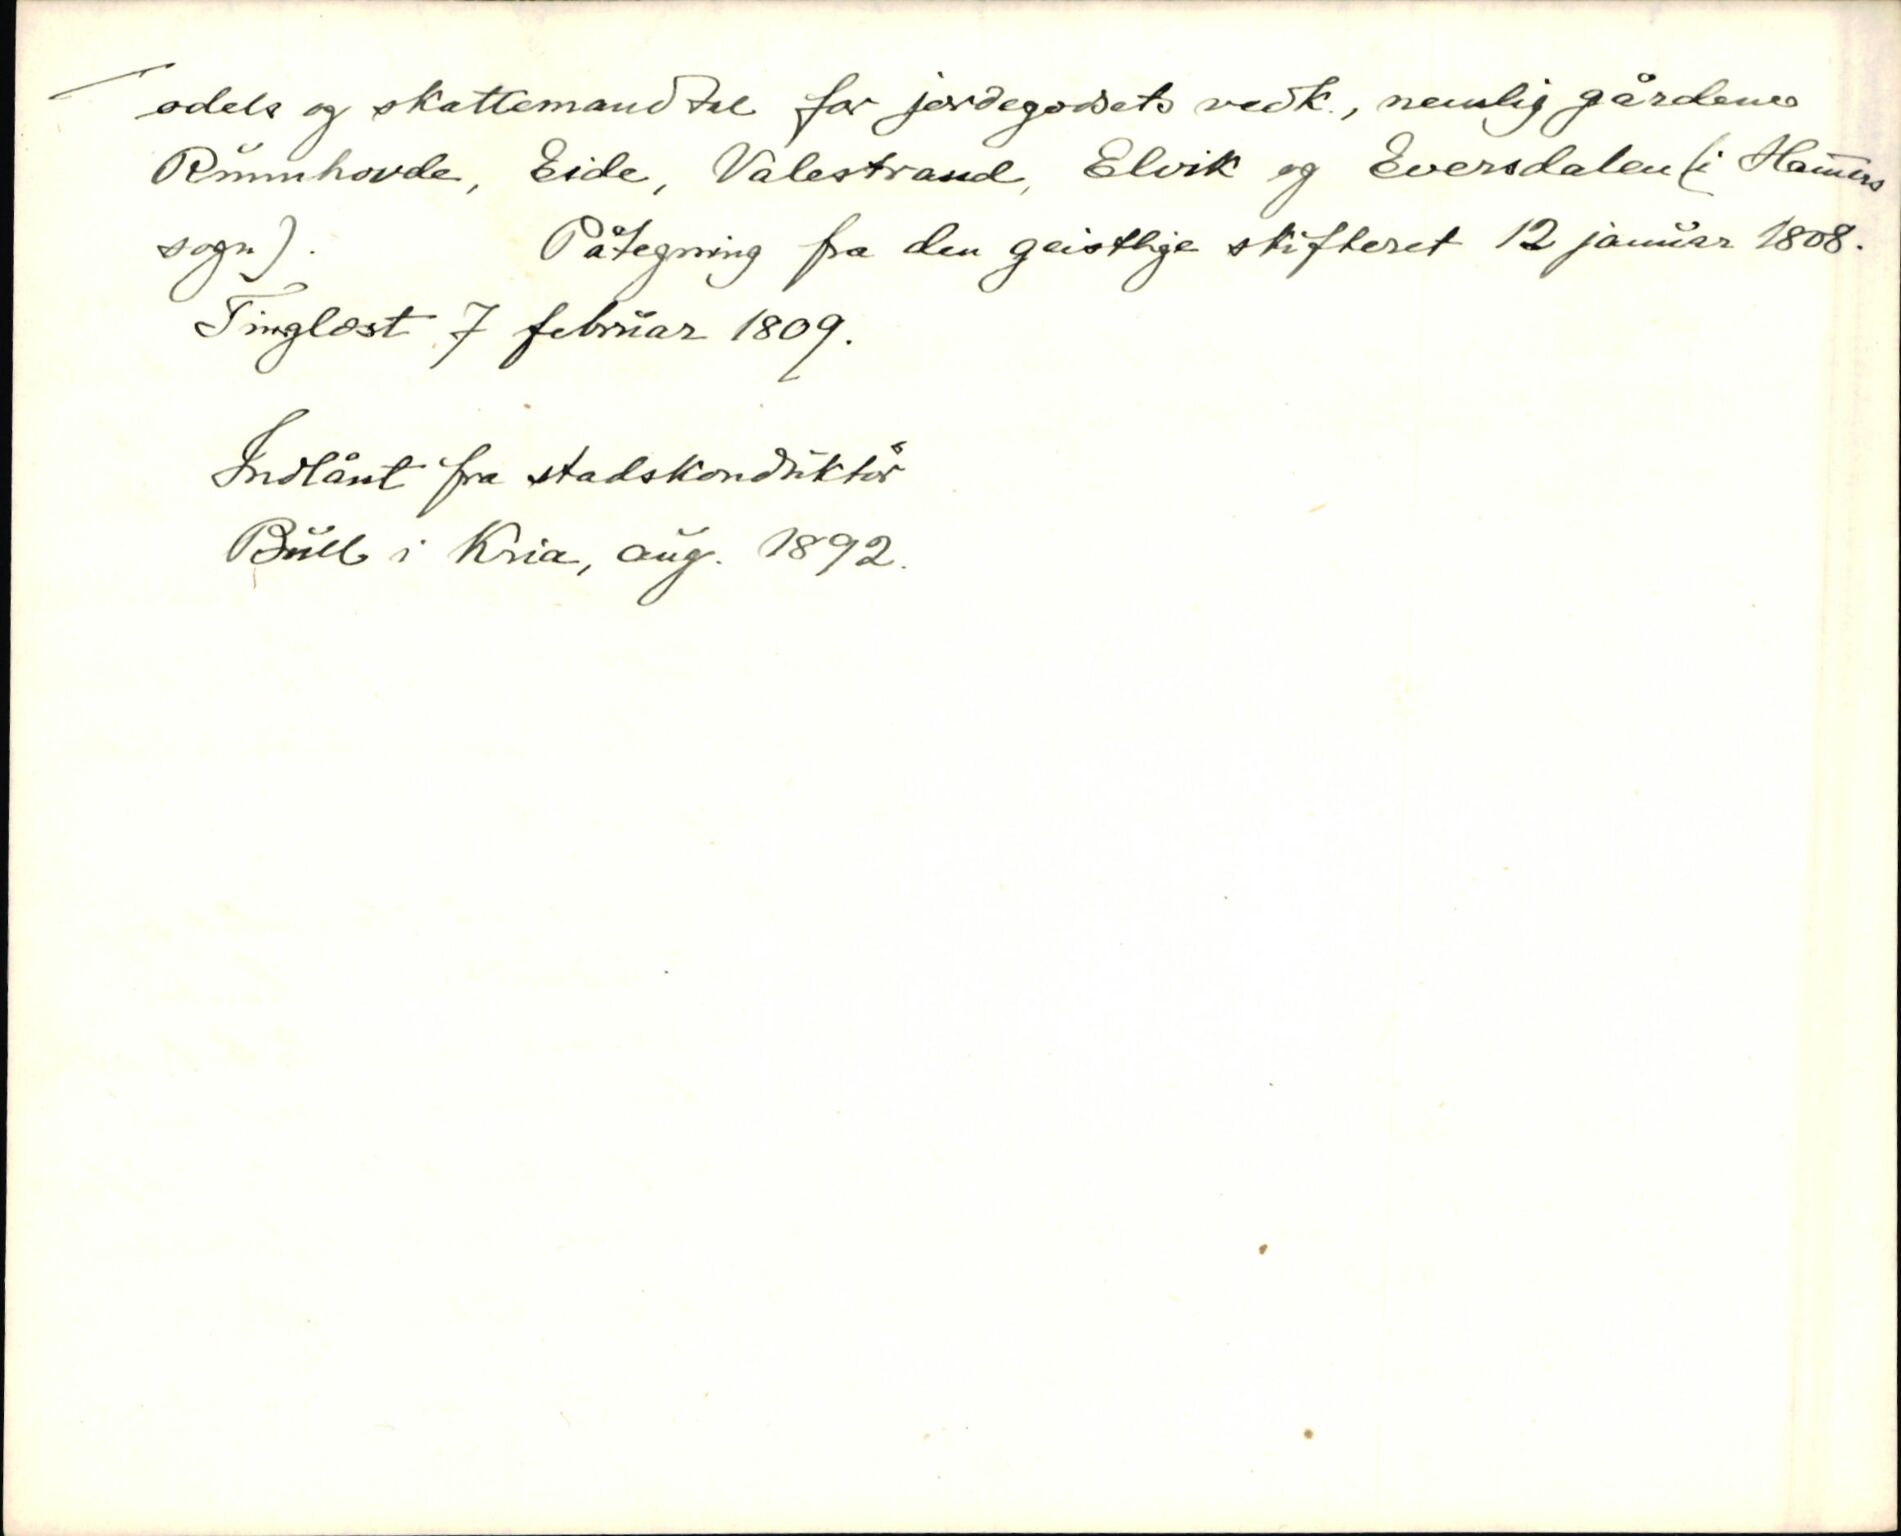 odels og skattemandtal for jordegodsets vedk., nemlig gårdene
Rumnhovde, Eide, Valestrand, Elvik og Eversdalen (i Ham̅ers
sogn). Påtegning fra den geistlige skifteret 12 januar 1808.
Tinglæst 7 februar 1809.
Indlånt fra stadskonduktör
Bull i Kria, aug. 1892.